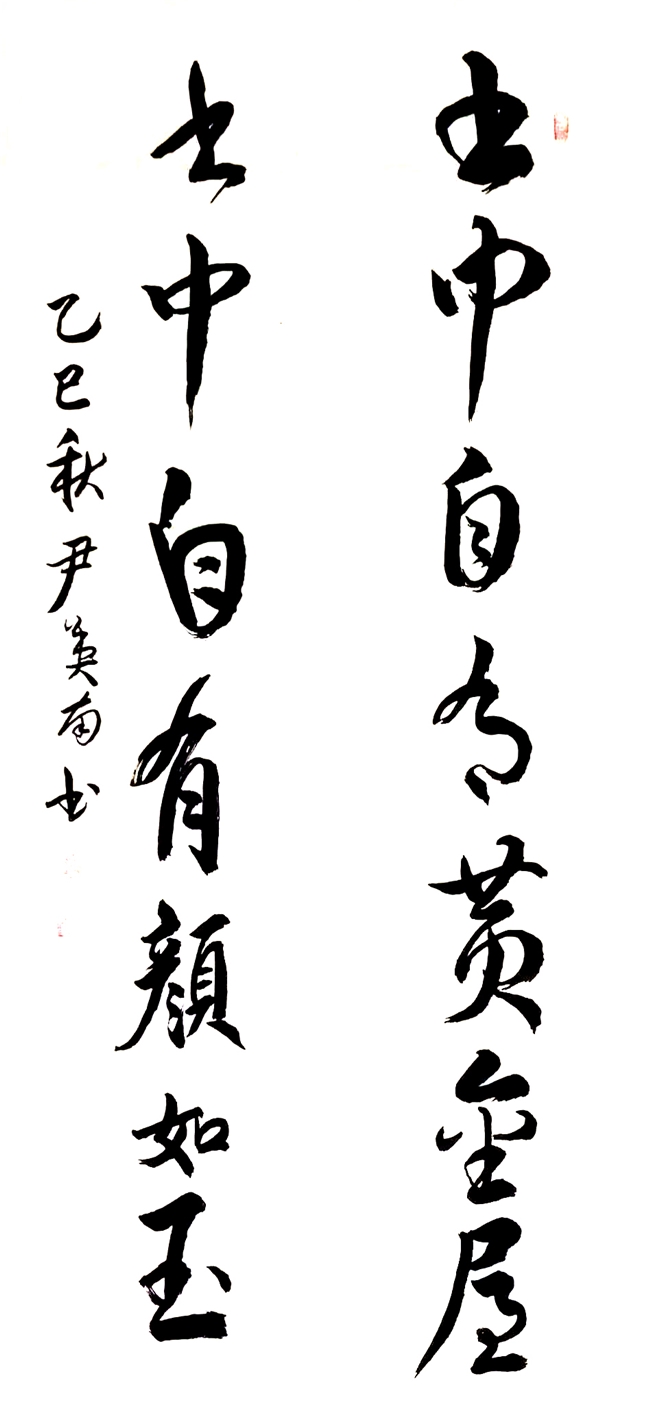 书中自有黄金屋
书中自有顔如玉
乙巳秋尹美南书